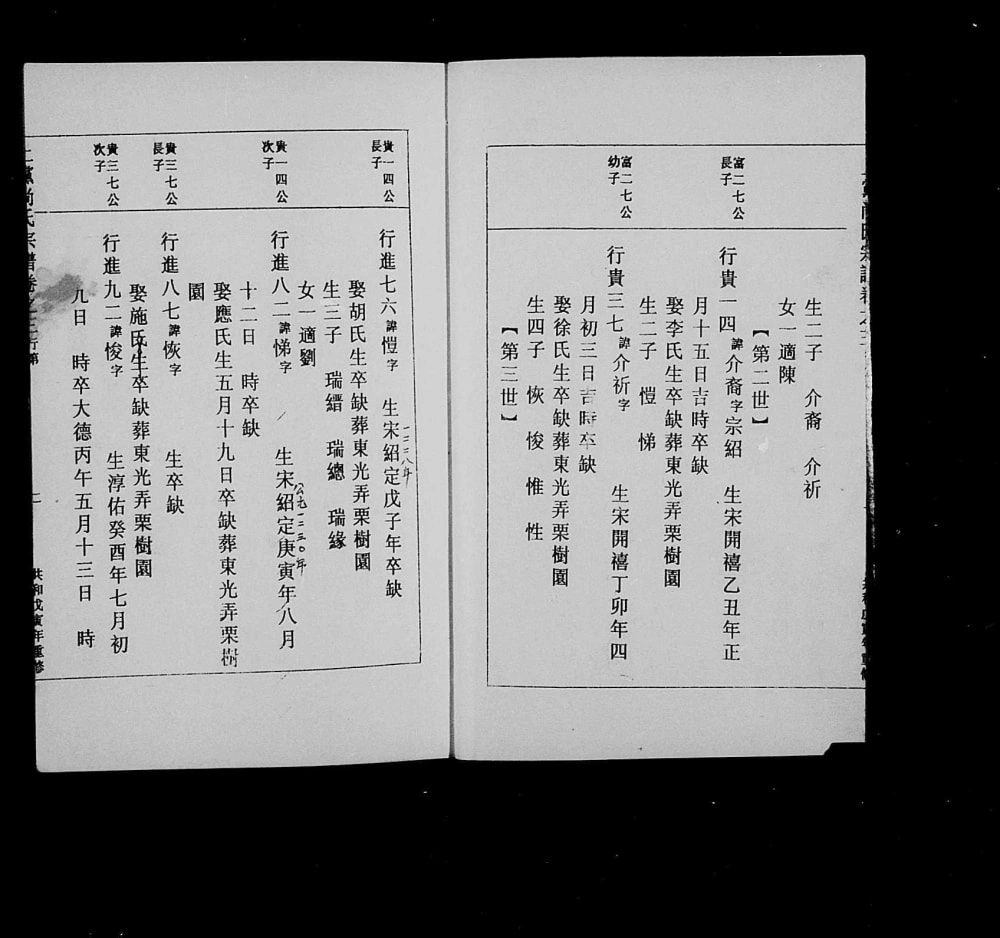 生二子　介裔　介祈
女一適陳
【第二世】
富二七公
長子
行貴一四諱介裔字宗紹　生宋開禧乙丑年正
月十五日吉時卒缺
娶李氏生卒缺葬東光弄栗樹園
生二子　愷　悌
富二七公
幼子
行貴三七諱介祈字　生宋開禧丁卯年四
月初三日吉時卒缺
娶徐氏生卒缺葬東光弄栗樹園
生四子　恢　悛　惟　性
【第三世】
貴一四公
長子
行進七六諱愷字　生宋紹定戊子年卒缺
一二二八年
娶胡氏生卒缺葬東光弄栗樹園
生三子　瑞縉　瑞總　瑞緣
女一適劉
貴一四公
次子
行進八二諱悌字　生宋紹定庚寅年八月
公元一二三〇年
十二日　時卒缺
娶應氏生五月十九日卒缺葬東光弄栗樹
園
貴三七公
長子
行進八七諱恢字　生卒缺
娶施氏生卒缺葬東光弄栗樹園
貴三七公
次子
行進九二諱悛字　生淳佑癸酉年七月初
九日　時卒大德丙午五月十三日　時
氏宗譜卷之三行第
二
共和戊寅年重修